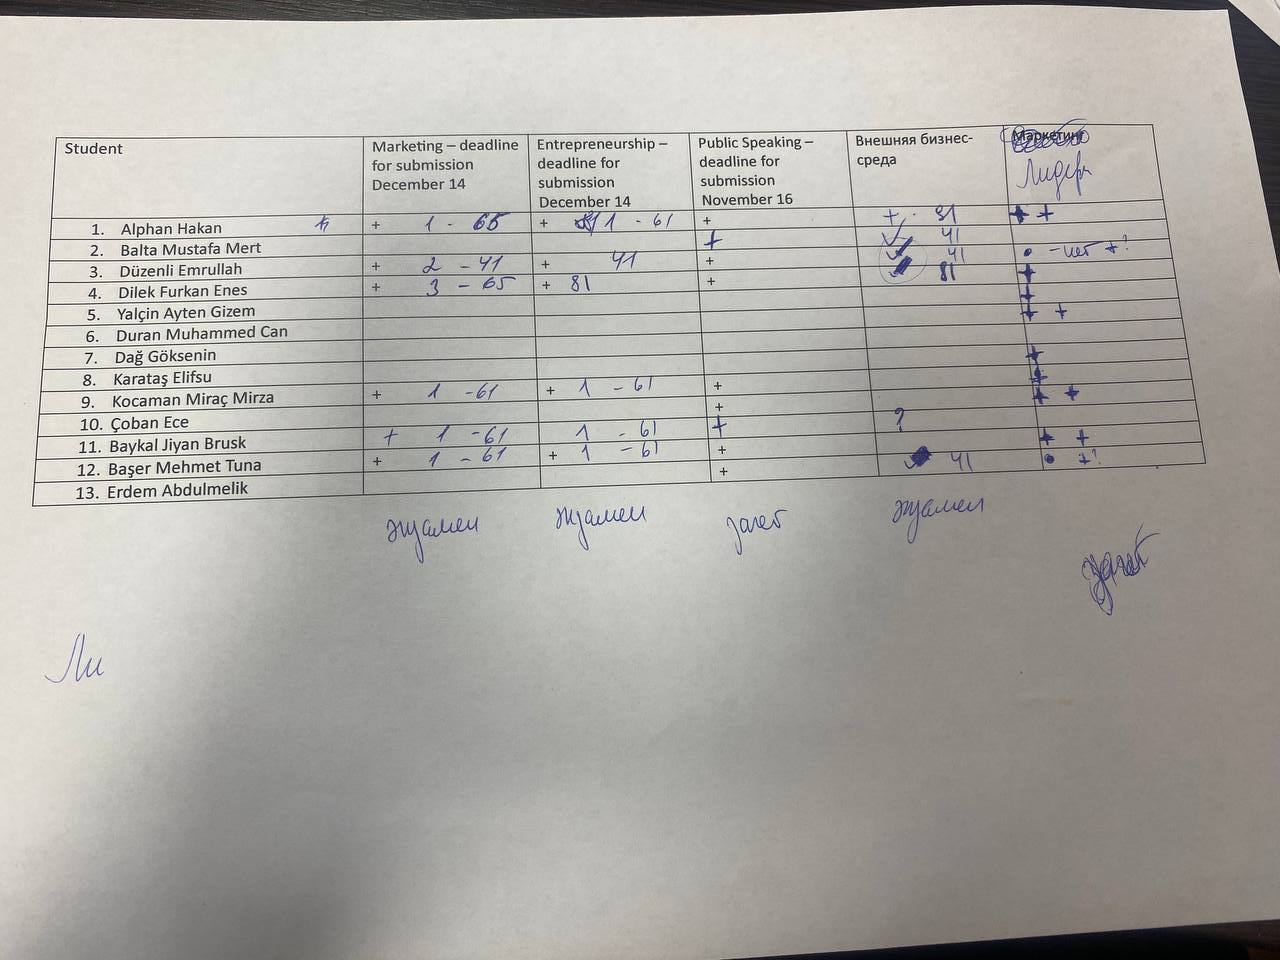 Student
Marketing – deadline
for submission
December 14
Entrepreneurship –
deadline for
submission
December 14
Public Speaking –
deadline for
submission
November 16
Внешняя бизнес-
среда
Маркетинг
Лидер
1. Alphan Hakan + 1 - 65 + 1 - 61 + + 81 + +
2. Balta Mustafa Mert + 41
3. Düzenli Emrullah + 2 - 41 + 41 + 41 - нет +?
4. Dilek Furkan Enes + 3 - 65 + 81 + 81 +
5. Yalçin Ayten Gizem +
6. Duran Muhammed Can + +
7. Dağ Göksenin
8. Karataş Elifsu +
9. Kocaman Miraç Mirza + 1 - 61 + 1 - 61 + + +
10. Çoban Ece + ?
11. Baykal Jiyan Brusk + 1 - 61 1 - 61 + + +
12. Başer Mehmet Tuna + 1 - 61 + 1 - 61 + 41 +?
13. Erdem Abdulmelik +
экзамен экзамен зачет экзамен
зачет
Ли